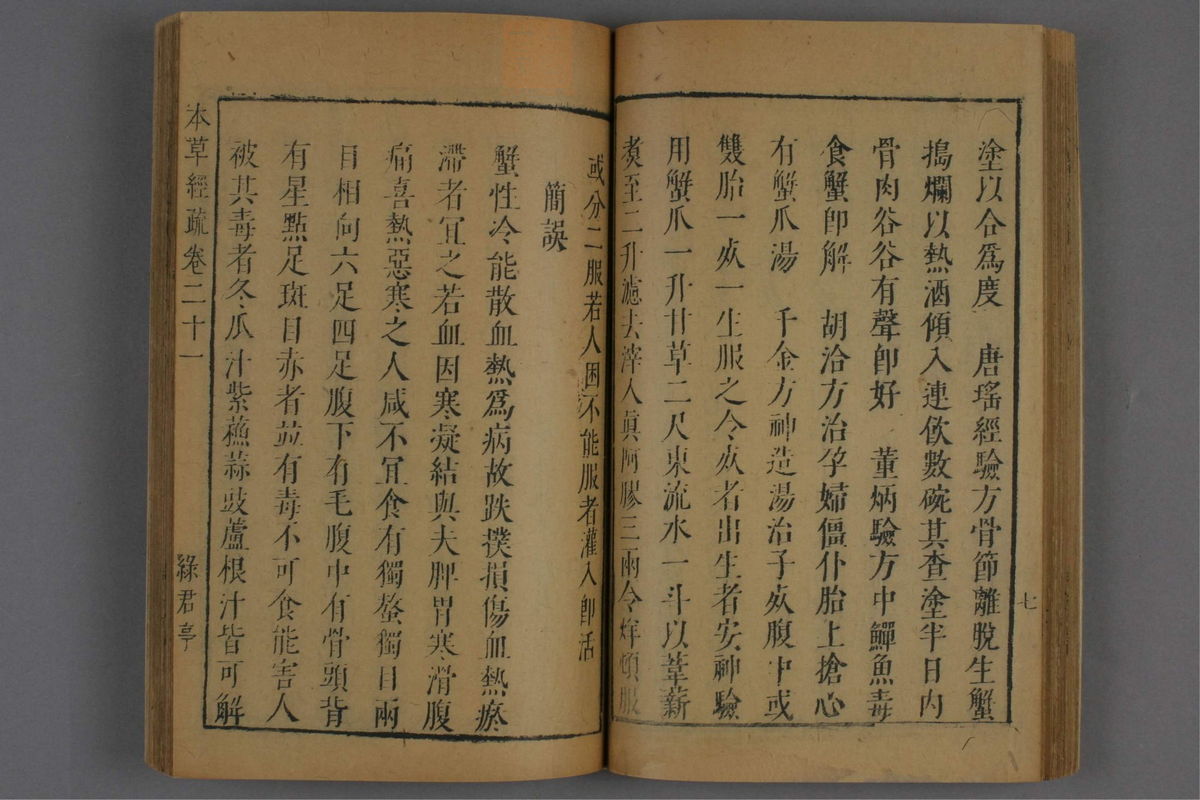 塗以合爲度　唐瑤經驗方骨節離脫生蟹
搗爛以熱酒傾入連飲數碗其查塗半日內
骨肉谷谷有聲卽好　董炳驗方中鱓魚毒
食蟹卽解　胡洽方治孕婦僵仆胎上搶心
有蟹爪湯　千金方神造湯治子𣦸腹中或
雙胎一𣦸一生服之令𣦸者出生者安神驗
用蟹爪一升甘草二尺東流水一斗以葦薪
煑至二升濾去滓入眞阿膠三兩令烊頓服
七
或分二服若人困不能服者灌入卽活
簡誤
蟹性冷能散血熱爲病故跌撲損傷血熱瘀
滯者宜之若血因寒凝結與夫脾胃寒滑腹
痛喜熱惡寒之人咸不宜食有獨螯獨目兩
目相向六足四足腹下有毛腹中有骨頭背
有星點足斑目赤者竝有毒不可食能害人
被其毒者冬瓜汁紫蘓蒜豉蘆根汁皆可解
本草經疏卷二十一
綠君亭